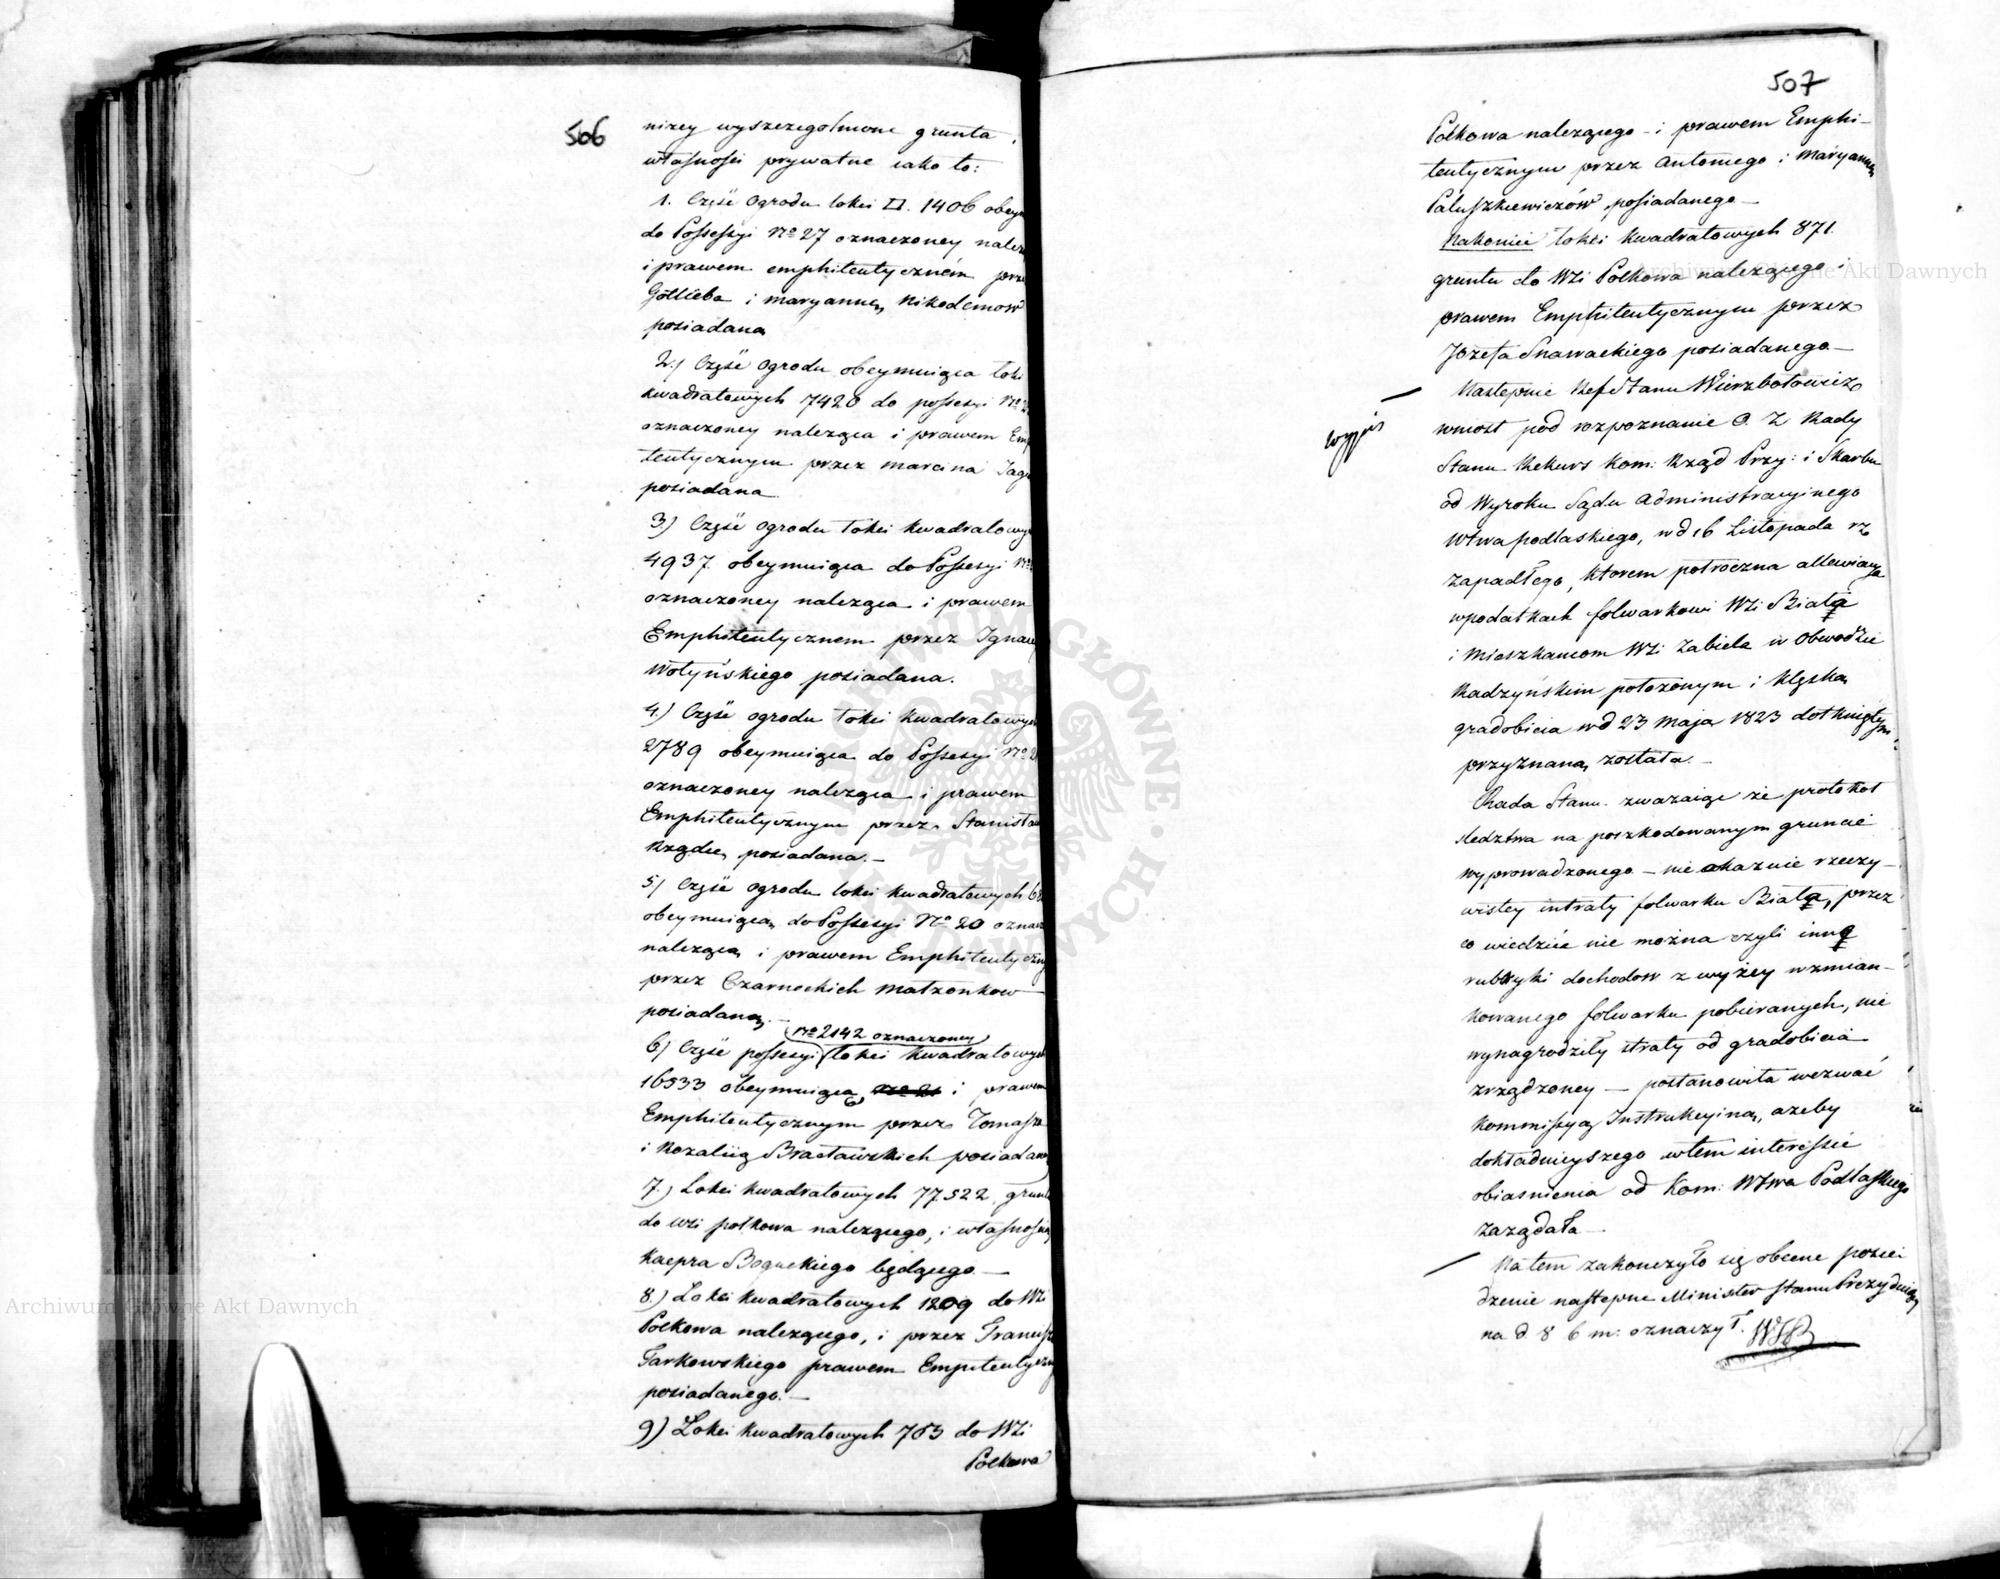 506
niżey wyszczegolnione grunta i
własności prywatne iako to:
1. Część ogrodu łokci □. 1406 obeym
do Possessyi Nº 27 oznaczoney należ
i prawem emphiteutyczném prze
Gottlieba i Maryannę Nikodemow
posiadana
2.) Część ogrodu obeymuiąca łokci
kwadratowych 7420 do possesyi Nº
oznaczoney należąca i prawem Emp
teutycznym przez Marcina Jag
posiadana
3.) Część ogrodu łokci kwadratowy
4937. obeymuiąca do Possesyi Nº
oznaczoney należąca i prawem
Emphiteutycznem przez Ignac
Wołyńskiego posiadana.
4.) Część ogrodu łokci kwadratowych
2789 obeymuiąca do Possesyi Nº
oznaczoney należąca i prawem
Emphiteutycznym przez Stanisła
Rządcę posiadana.—
5) Część ogrodu łokci kwadratowych
obeymuiąca do Possesyi Nº 20 oznacz
należąca i prawem Emphiteutyczny
przez Czarnockich Małżonkow
posiadana.—
Nº 2142 oznaczoney
6) Część possesyi łokci kwadratowych
16533 obeymuiąca i prawem
Emphiteutycznym przez Tomasza
i Rozalią Bracławskich posiadana
7.) Łokci kwadratowych 77522 grunt
do Wsi Polkowa należącego, i własnością
Kacpra Boguckiego będącego —
8.) Łokci kwadratowych 1209 do Wsi
Polkowa należącego, i przez Francisz
Tarkowskiego prawem Empiteutyczn
posiadanego.—
9) Łokci kwadratowych 763 do Wsi
Polkowa
507
Polkowa należącego – i prawem Emphi-
teutycznym przez Antoniego i Maryannę
Paluszkiewiczów posiadanego —
Nakoniec łokci kwadratowych 871.
gruntu do Wsi Polkowa należącego i
prawem Emphiteutycznym przez
Jozefa posiadanego.—
Następnie Ref Stanu Wierzbołowicz
wypis
wniosł pod rozpoznanie O. Z Rady
Stanu Rekurs Kom: Rząd Przy: i Skarbu
od Wyroku Sądu Administracyinego
Wtwa podlaskiego, w d 16 Listopada rz
zapadłego, ktorem potroczna allewiacya
w podatkach folwarkowi Wsi Białą
i Mieszkancom Wsi Zabiela w Obwodzie
Radzyńskim położonym i klęską
gradobicia w d 23 Maja 1823 dotkniętym
przyznaną została.—
Rada Stanu zważaiąc że protokoł
sledztwa na poszkodowanym gruncie
wyprowadzonego — nie okazuie rzeczy-
wistey intraty folwarku Białą, przez
co wiedzieć nie można czyli inną
rubryki dochodow z wyżey wzmian-
kowanego folwarku pobieranych, nie
wynagrodziły straty od gradobicia
zrządzoney — postanowiła wezwać
Kommissyą Instrukcyiną, ażeby
dokładnieyszego w tem interessie
obiasnienia od Kom: Wtwa Podlaskiego
zażądała —
Na tem zakonczyło się obecne posie-
dzenie następne Minister Stanu Prezyduiący
na d 8 b m: oznaczył.
Archiwum Główne Akt Dawnych
Archiwum Główne Akt Dawnych
ARCHIWUM GŁÓWNE AKT DAWNYCH